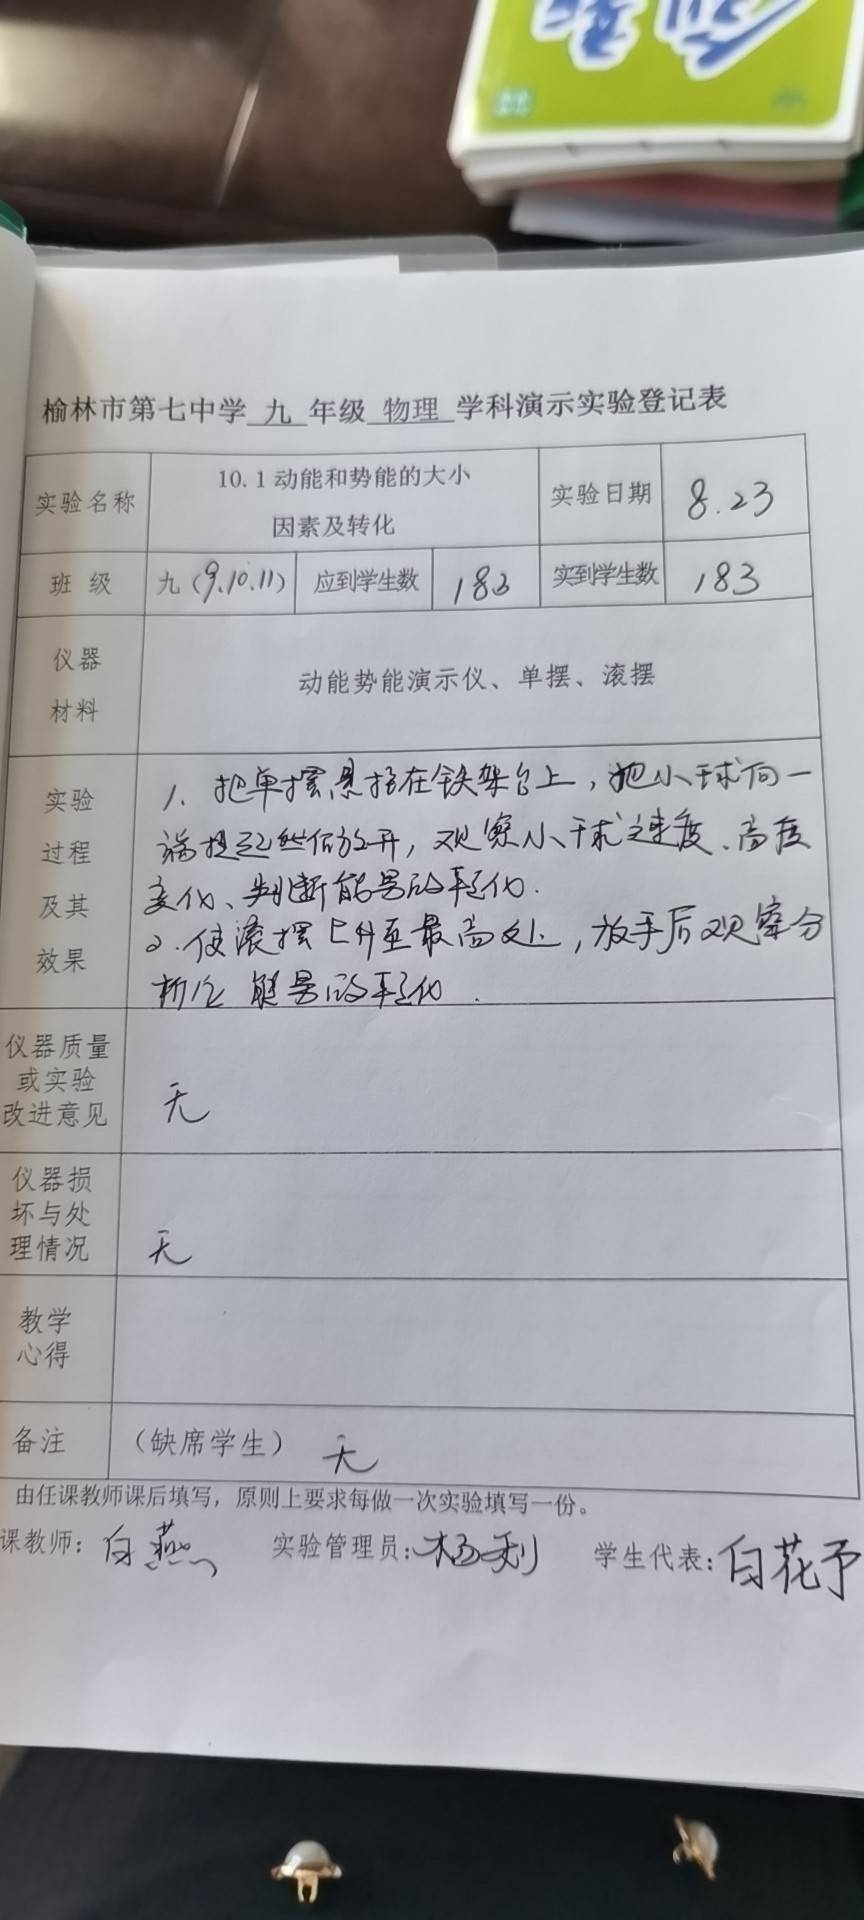 榆林市第七中学 九 年级 物理 学科演示实验登记表
实验名称 10.1动能和势能的大小因素及转化 实验日期 8.23
班级 九(9.10.11) 应到学生数 183 实到学生数 183
仪器材料 动能势能演示仪、单摆、滚摆
实验过程及其效果
1. 把单摆悬挂在铁架台上，把小球向一
端提起然后放开，观察小球速度、高度
变化、判断能量的转化.
2.使滚摆上升至最高处，放手后观察分
析它能量的转化.
仪器质量或实验改进意见 无
仪器损坏与处理情况 无
教学心得
备注 （缺席学生） 无
由任课教师课后填写，原则上要求每做一次实验填写一份。
课教师：白燕 实验管理员：杨利 学生代表：白花予